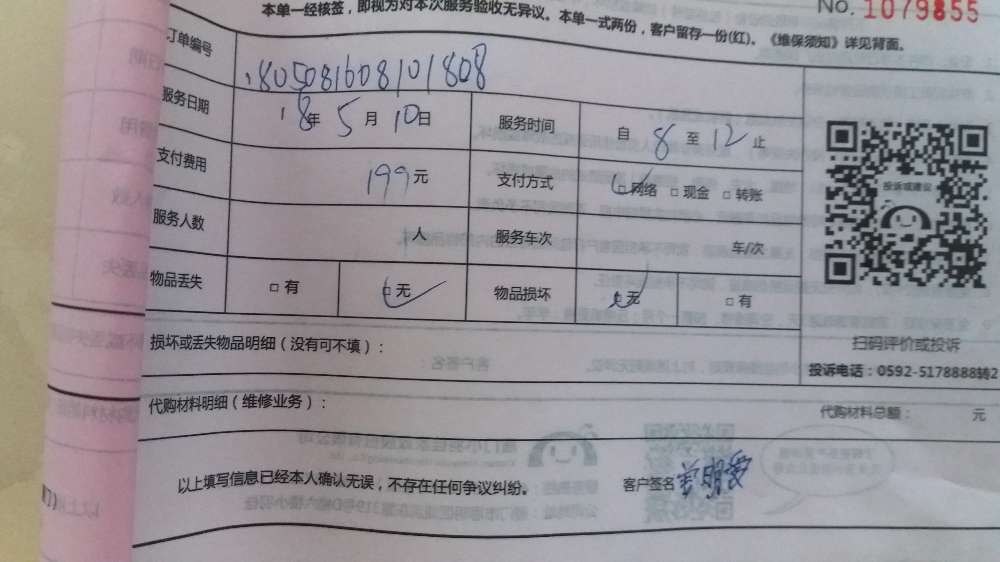 NO. 1079855
本单一经核签，即视为对本次服务验收无异议。本单一式两份，客户留存一份(红)。《维保须知》详见背面。
订单编号 1805081608101808
服务日期 18年5月10日 服务时间 自8至12止
支付费用 199元 支付方式 □网络 □现金 □转账
服务人数 人 服务车次 车/次
物品丢失 □有 □无 物品损坏 □无 □有
投诉或建议
扫码评价或投诉
投诉电话：0592-5178888转2
损坏或丢失物品明细（没有可不填）：
代购材料明细（维修业务）： 代购材料总额： 元
以上填写信息已经本人确认无误，不存在任何争议纠纷。 客户签名